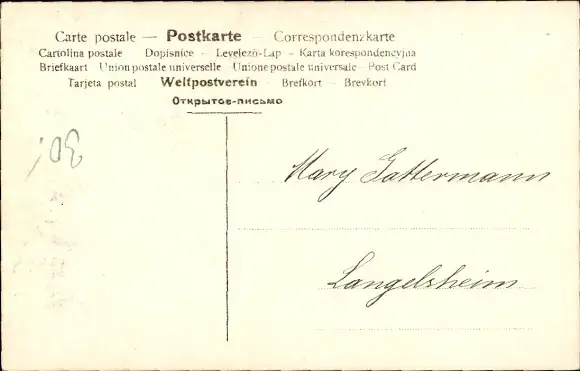 Carte postale — Postkarte — Correspondenzkarte
Cartolina postale – Dopisnice – Levelező-Lap – Karta korespondencyjna
Briefkaart – Union postale universelle – Unione postale universale – Post Card
Tarjeta postal – Weltpostverein – Brefkort – Brevkort
Открытое-письмо
Mary Gattermann
Langelsheim